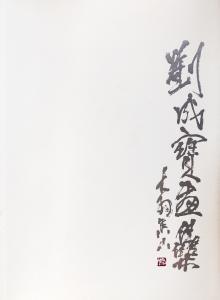 劉成寶畫集